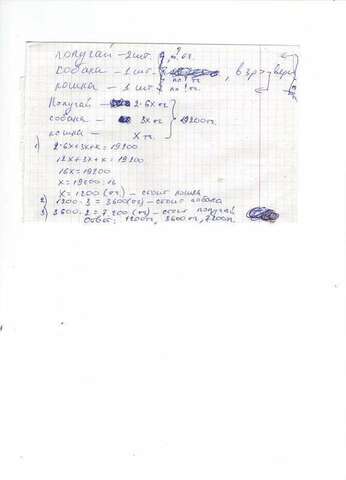 попугай – 2 шт. ? тг.
собака – 1 шт. ? тг, в 3 р >
кошка – 1 шт. ? тг
Попугай – 2·6х тг
собака – 3х тг } 19200 тг.
кошка – х тг.
1) 2·6х+3х+х=19200
12х+3х+х=19200
16х=19200
х=19200:16
х=1200 (тг) – стоит кошка
2) 1200·3=3600(тг) – стоит собака
3) 3600·2=7200(тг) – стоит попугай
Ответ: 1200тг, 3600тг, 7200тг.